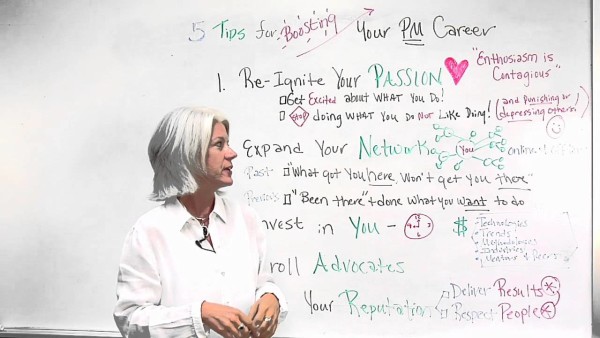 5 Tips for Boosting Your PM Career
1. Re-Ignite Your PASSION
"Enthusiasm is Contagious"
Get Excited about WHAT YOU DO!
STOP doing WHAT YOU DO NOT Like Doing! (and punishing or depressing others)
Expand Your Network
You
online
Past "What got You here, Won't get you there"
"Been there" + done what you want to do
nvest in You - $
- Technologies
- Trends
- Methodologies
- Industries
- Mentors & Peers
roll Advocates
Your Reputation
Deliver Results
Respect People